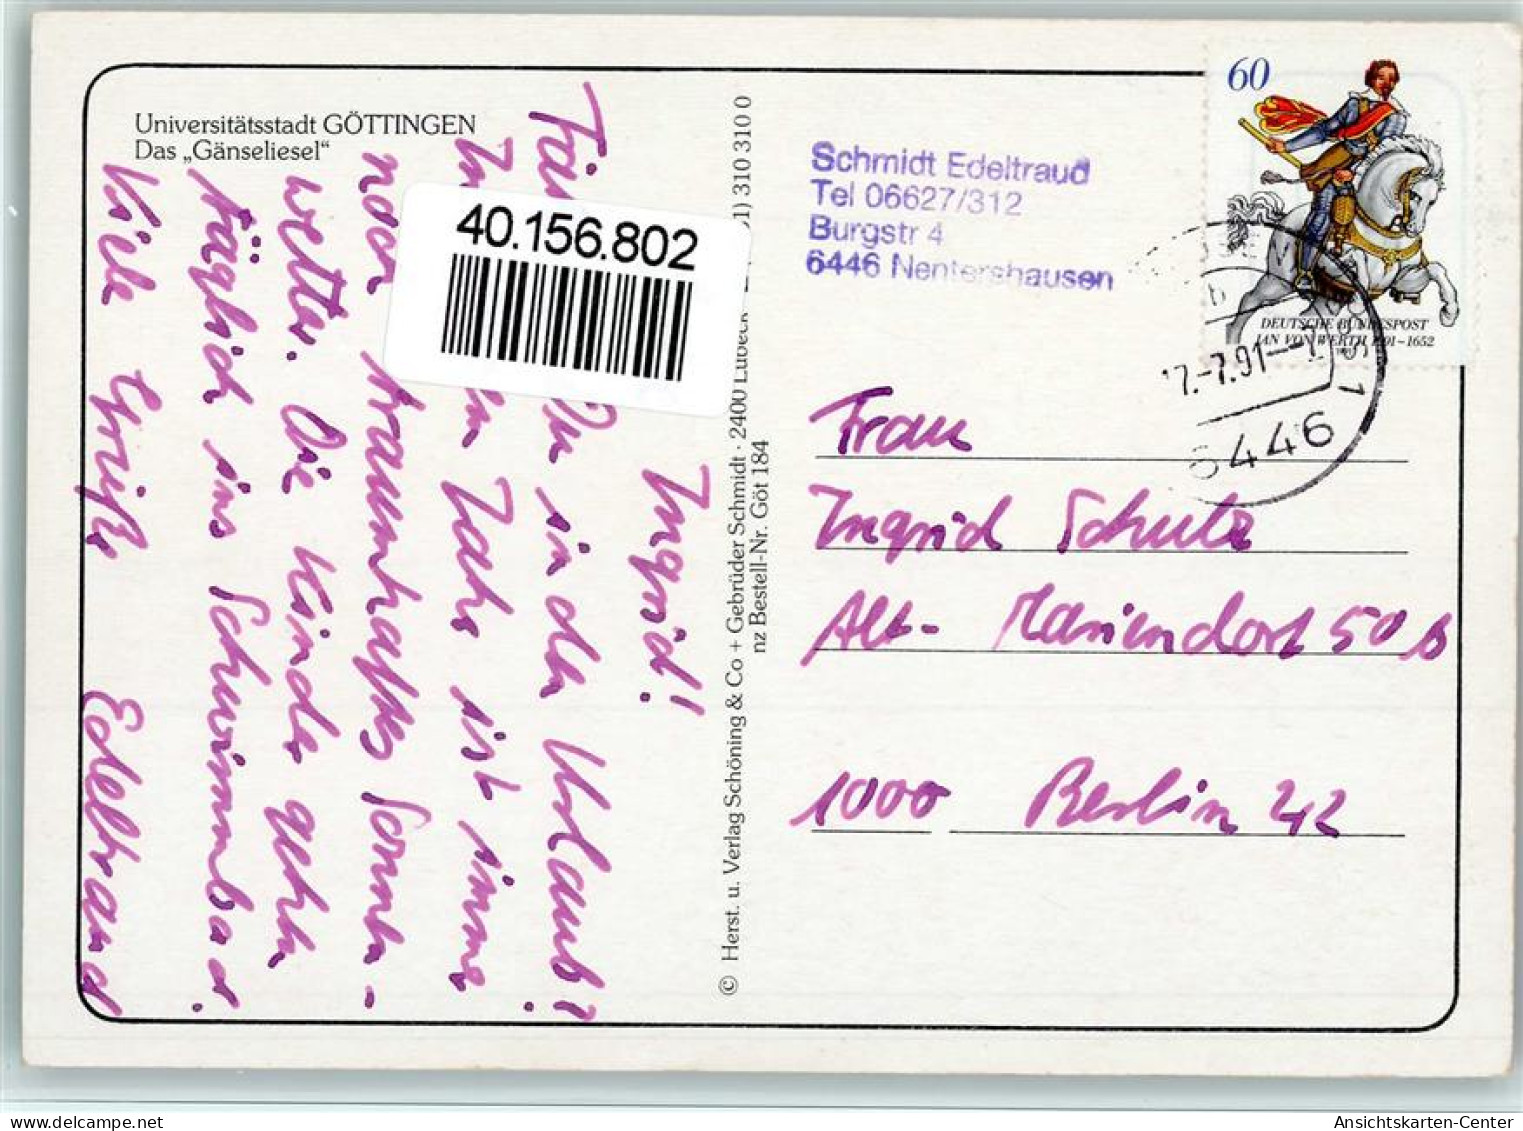 Universitätsstadt GÖTTINGEN
Das „Gänseliesel“
Ingrid!
Du in den Urlaub?
Jahr ist immer
noch traumhaftes Sonnen-
wetter. Die Kinder gehen
täglich ins Schwimmbad.
Viele Grüße Edeltraud
40.156.802
© Herst. u. Verlag Schöning & Co + Gebrüder Schmidt · 2400 Lübeck 1) 310 310 0
nz Bestell-Nr. Göt 184
Schmidt Edeltraud
Tel 06627/312
Burgstr 4
6446 Nentershausen
60
DEUTSCHE BUNDESPOST
JAN VON WERTH 1591–1652
17.-7.91--7
6446
1
Frau
Ingrid Schulz
Alt-Mariendorf 50 b
1000 Berlin 42
delcampe.net
Ansichtskarten-Center